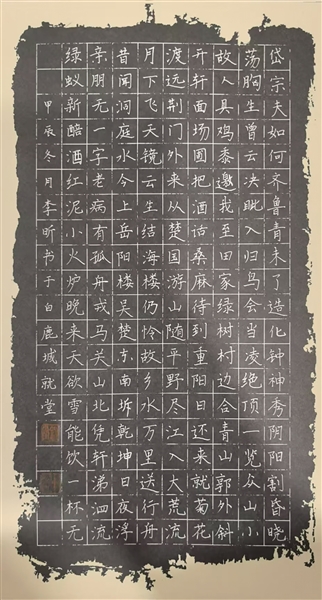 岱宗夫如何齐鲁青未了造化钟神秀阴阳割昏晓
荡胸生曾云决眦入归鸟会当凌绝顶一览众山小
故人具鸡黍邀我至田家绿树村边合青山郭外斜
开轩面场圃把酒话桑麻待到重阳日还来就菊花
渡远荆门外来从楚国游山随平野尽江入大荒流
月下飞天镜云生结海楼仍怜故乡水万里送行舟
昔闻洞庭水今上岳阳楼吴楚东南坼乾坤日夜浮
亲朋无一字老病有孤舟戎马关山北凭轩涕泗流
绿蚁新醅酒红泥小火炉晚来天欲雪能饮一杯无
甲辰冬月李昕书于白鹿城就堂